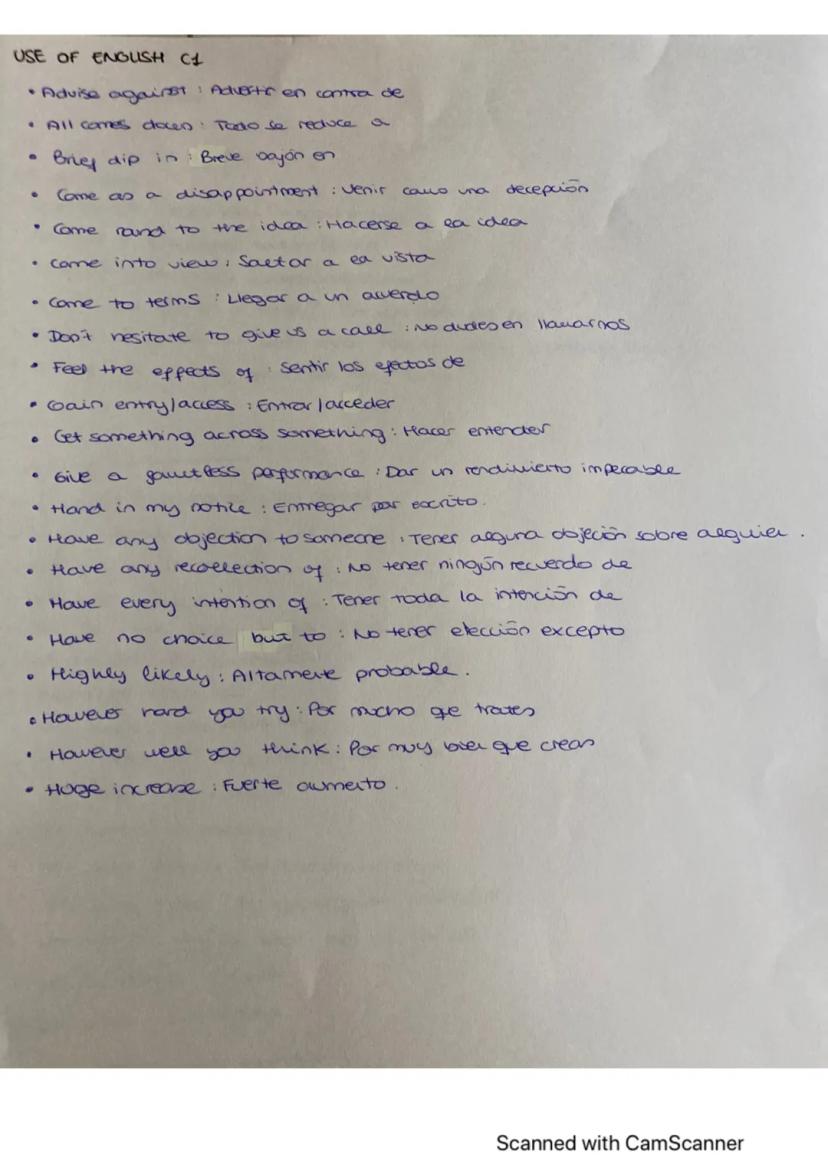 USE OF ENGLISH C1
• Advise against : Advertir en contra de
• All comes down : Todo se reduce a
• Brief dip in : Breve bajón en
• Come as a disappointment : Venir como una decepción
• Come round to the idea : Hacerse a la idea
• Come into view : Saltar a la vista
• Come to terms : Llegar a un acuerdo
• Don't hesitate to give us a call : No dudes en llamarnos
• Feel the effects of : Sentir los efectos de
• Gain entry/access : Entrar/acceder
• Get something across something : Hacer entender
• Give a performance : Dar un rendimiento impecable
• Hand in my notice : Entregar por escrito.
• Have any objection to someone : Tener alguna objeción sobre alguien.
• Have any recollection of : No tener ningún recuerdo de
• Have every intention of : Tener toda la intención de
• Have no choice but to : No tener elección excepto
• Highly likely : Altamente probable.
• However hard you try : Por mucho que trates
• However well you think : Por muy bien que creas
• Huge increase : Fuerte aumento.
Scanned with CamScanner